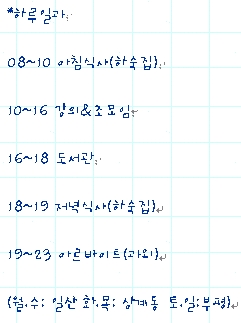 *하루일과
08~10 아침식사(하숙집)
10~16 강의&조모임
16~18 도서관
18~19 저녁식사(하숙집)
19~23 아르바이트(과외)
(월.수; 일산 화.목; 상계동 토.일;부평)